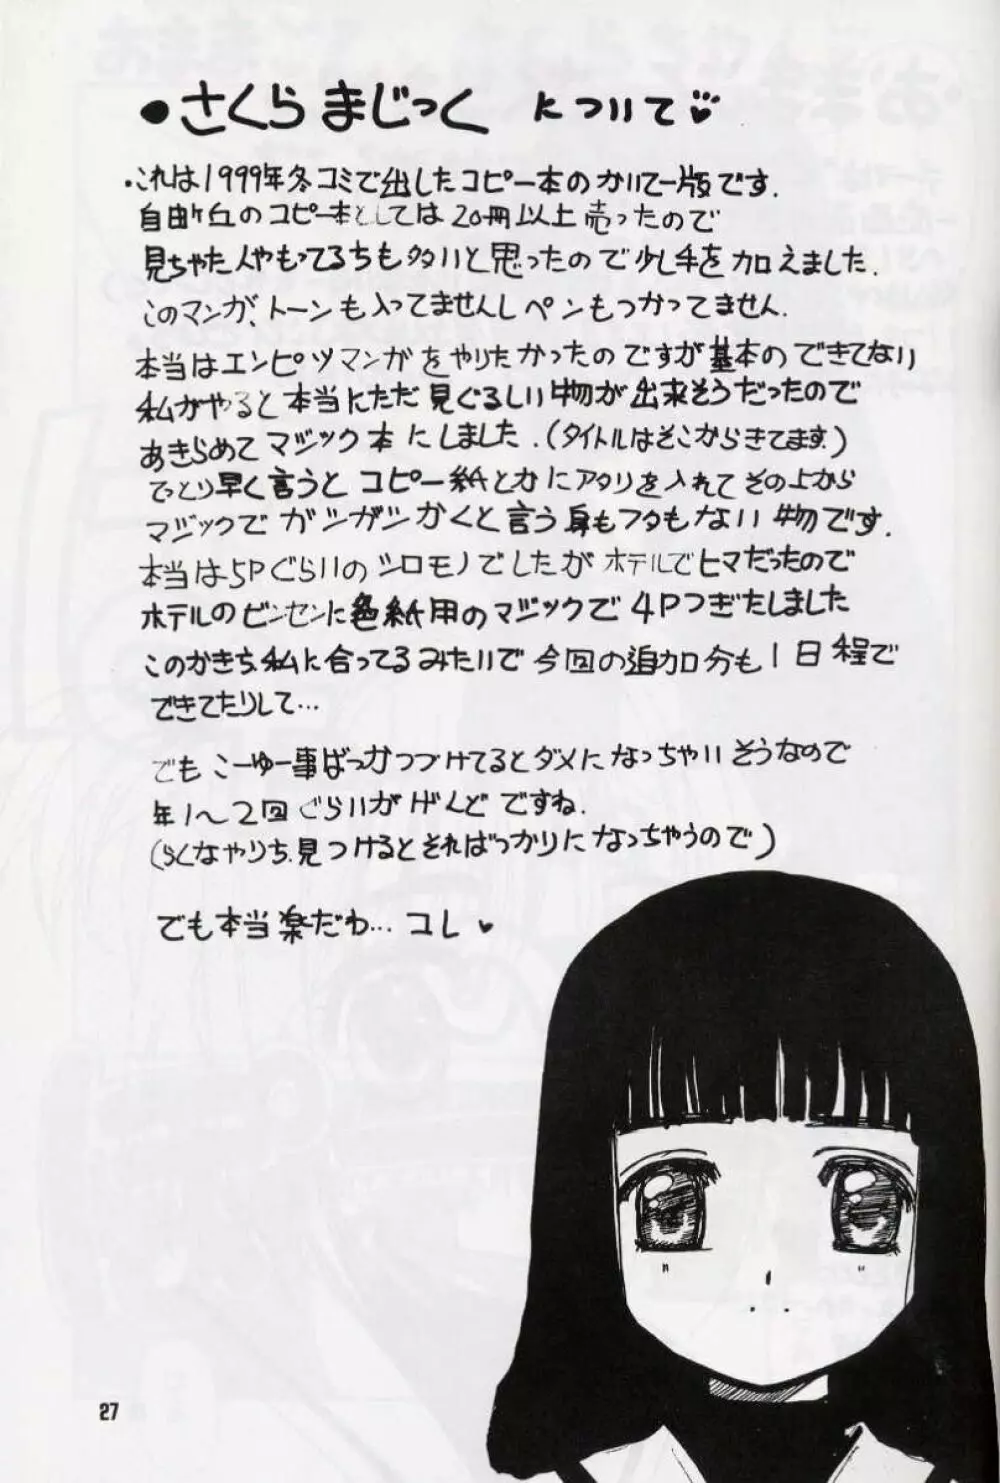 ●さくら まじっく について
・これは1999年冬コミで出したコピー本のかいてー版です.
自由ヶ丘のコピー本としては20冊以上売ったので
見ちゃた人やもってるちも多いと思ったので少し手を加えました.
このマンガ、トーンも入ってませんしペンもつかってません.
本当はエンピツマンガをやりたかったのですが基本のできてない
私がやると本当にただ見ぐるしい物が出来そうだったので
あきらめてマジック本にしました.(タイトルはそこからきてます.)
てっとり早く言うと コピー紙とかにアタリを入れてその上から
マジックでガシガシかくと言う身もフタもない物です.
本当は5Pぐらいのシロモノでしたがホテルでヒマだったので
ホテルのビンセンに色紙用のマジックで4Pつぎたしました
このかきち、私に合ってるみたいで今回の追加分も1日程で
できてたりして…
でもこーゆー事ばっかつづけてるとダメになっちゃいそうなので
年1〜2回ぐらいがげんどですね.
(らくなやりち、見つけるとそればっかりになっちゃうので)
でも本当楽だわ…コレ♥
27